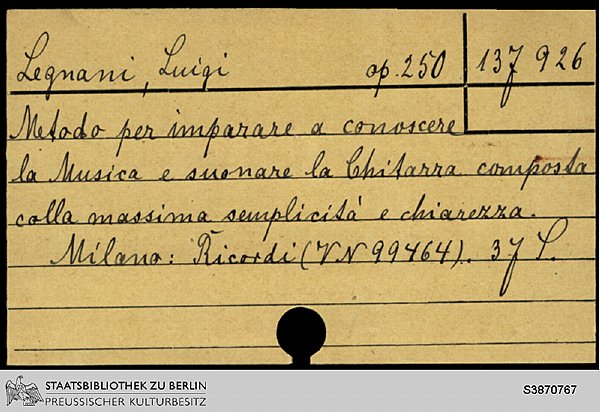 Legnani, Luigi op. 250 137 926
Metodo per imparare a conoscere
la Musica e suonare la Chitarra composta
colla massima semplicitá e chiarezza.
Milano: Ricordi (VN 99464). 37 S.
STAATSBIBLIOTHEK ZU BERLIN
PREUSSISCHER KULTURBESITZ
S3870767